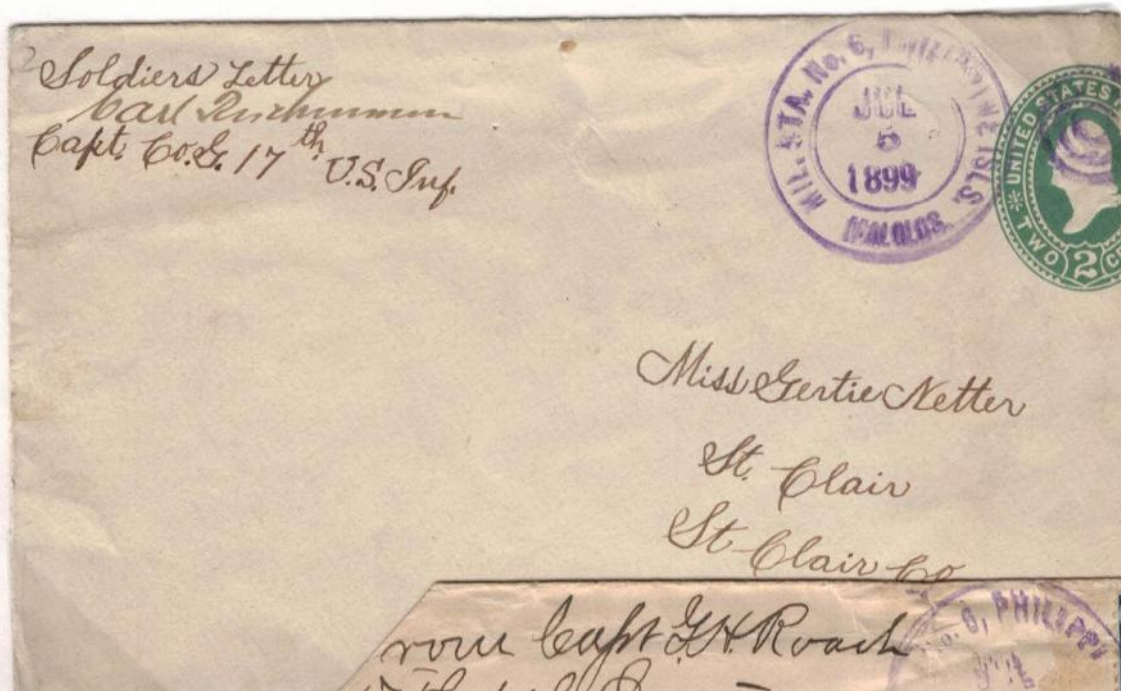 Soldiers' Letter
Carl
Capt. Co. G. 17th U.S. Inf.
MIL. STA. No. 6, PHILIPPINE ISLS.
JUL
5
1899
MALOLOS.
UNITED STATES
TWO 2
Miss Gertie Netter
St. Clair
St Clair Co
rom Capt G.H. Roach
No. 6, PHILIPPI